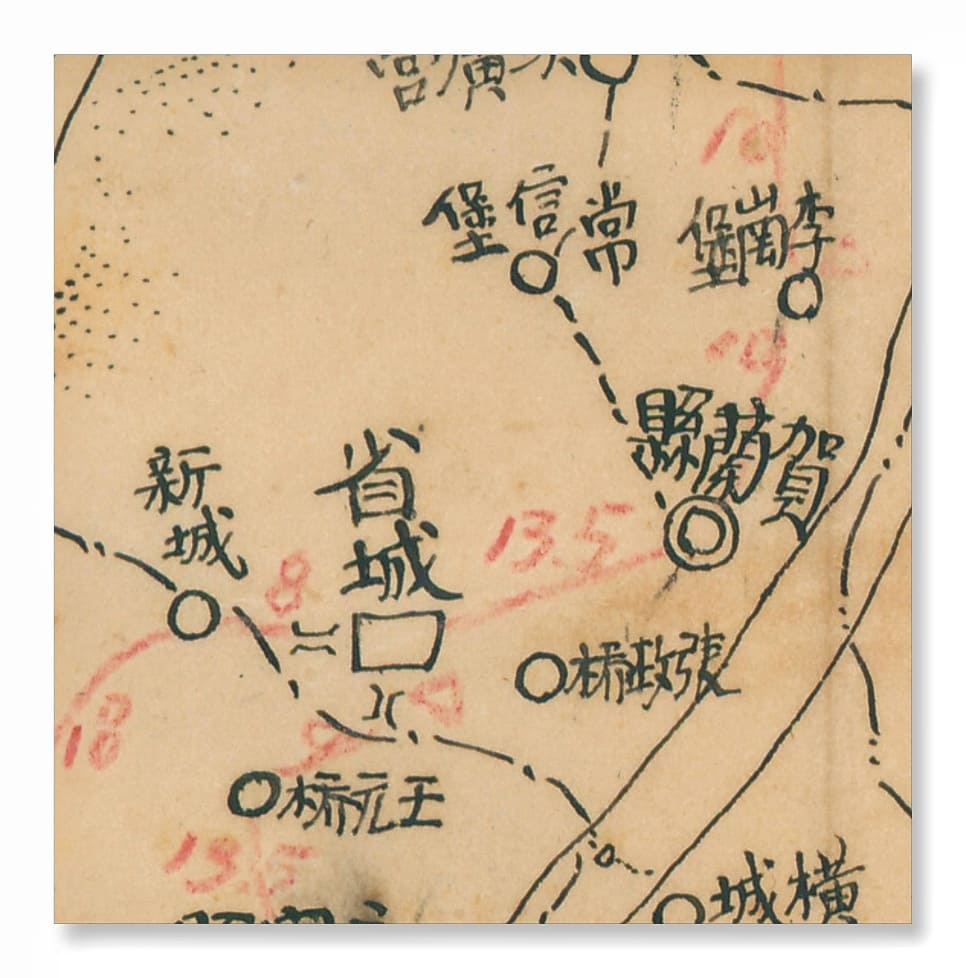 常信堡
李崗堡
10
19
賀蘭縣
新城
省城
13.5
8
張政桥
18
9
王元桥
13.5
橫城